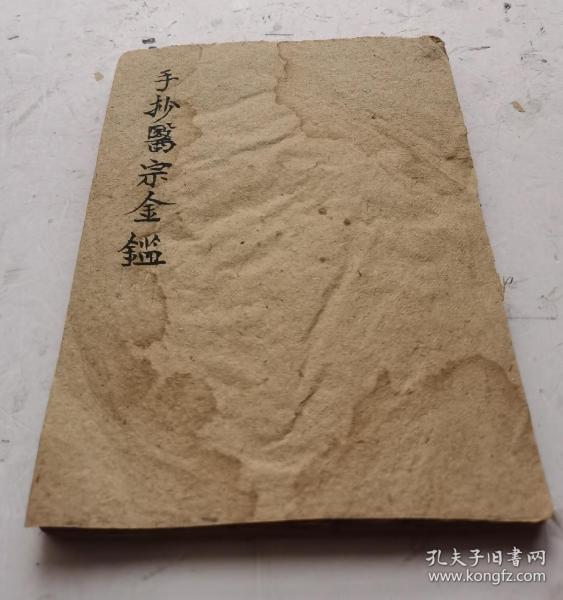 手抄醫宗金鑑
孔夫子旧書网
www.kongfz.com